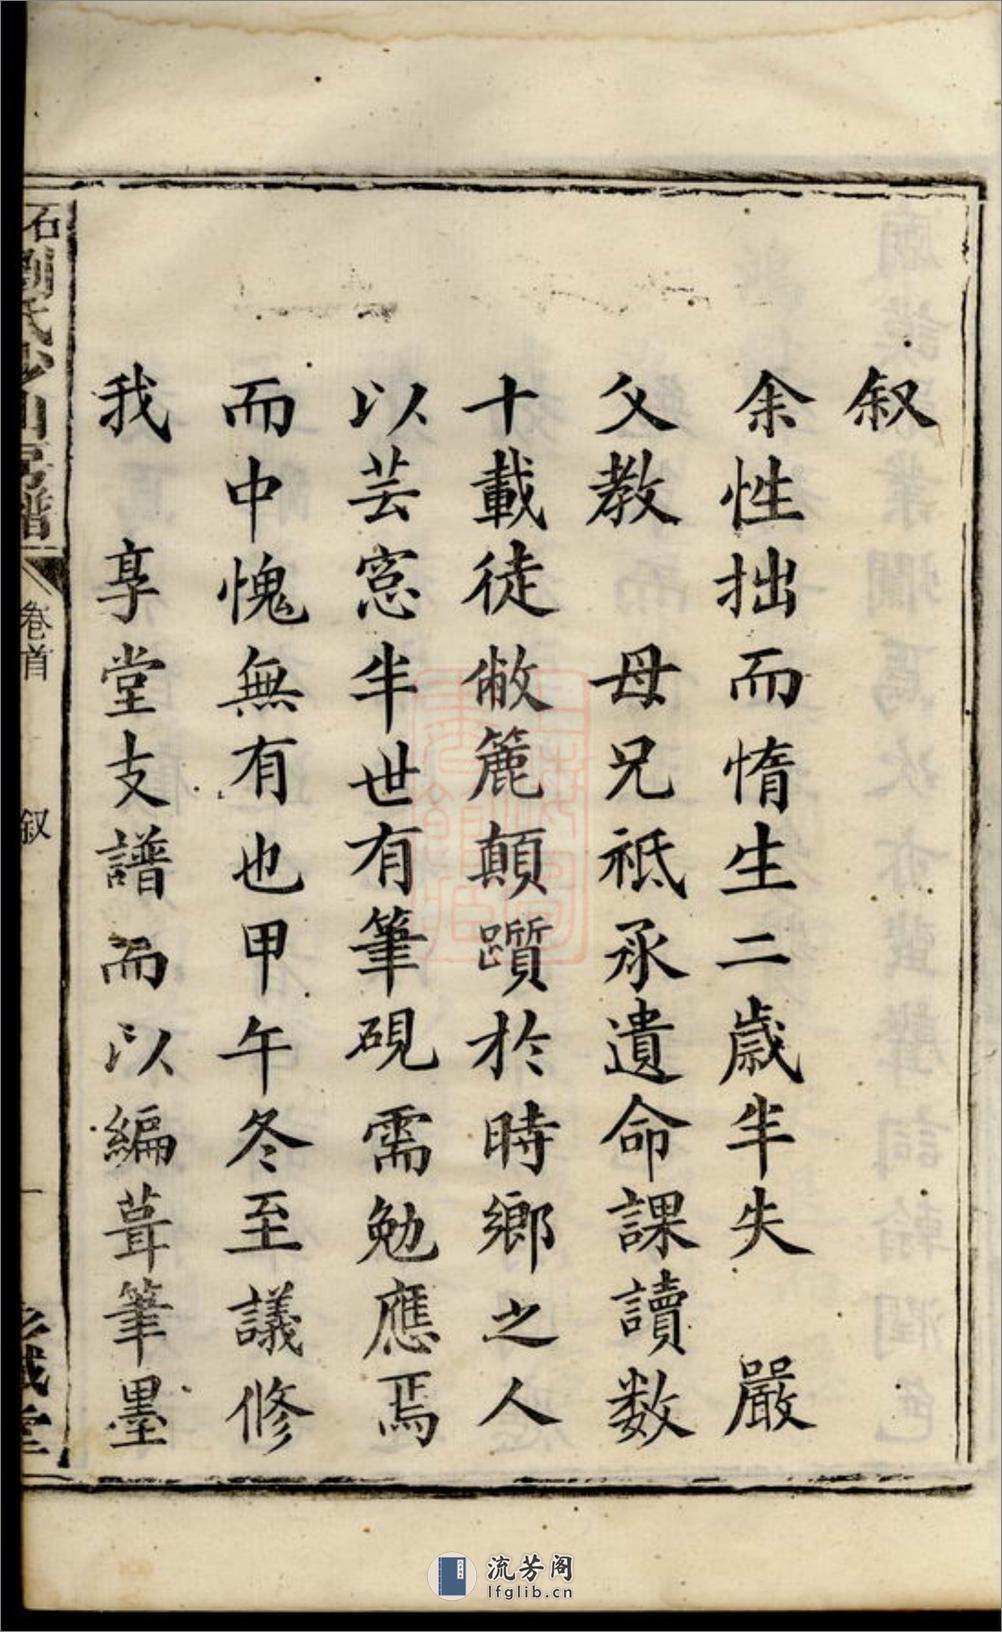 叙
余性拙而惰生二歲半失　嚴
父教　母兄祗承遺命課讀数
十載徒敝簏顛躓於時鄉之人
以芸窓半世有筆硯需勉應焉
而中愧無有也甲午冬至議修
我　享堂支譜而以編葺筆墨
石劉氏沙山房譜
卷首
叙
一
流芳阁
lfglib.cn